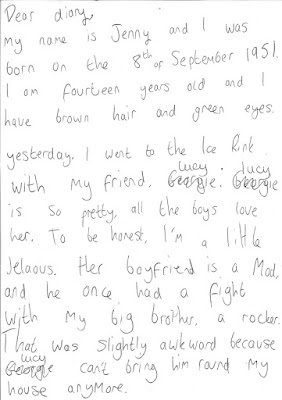 Dear diary,
my name is Jenny and I was
born on the 8th of September 1951.
I am fourteen years old and I
have brown hair and green eyes.
yesterday, I went to the Ice Rink
lucy . lucy
with my friend, Georgie. Georgie
is so pretty, all the boys love
her. To be honest, I'm a little
Jelaous. Her boyfriend is a Mod,
and he once had a fight
with my big brother, a rocker.
That was slightly awkward because
lucy
Georgie can't bring him round my
house anymore.